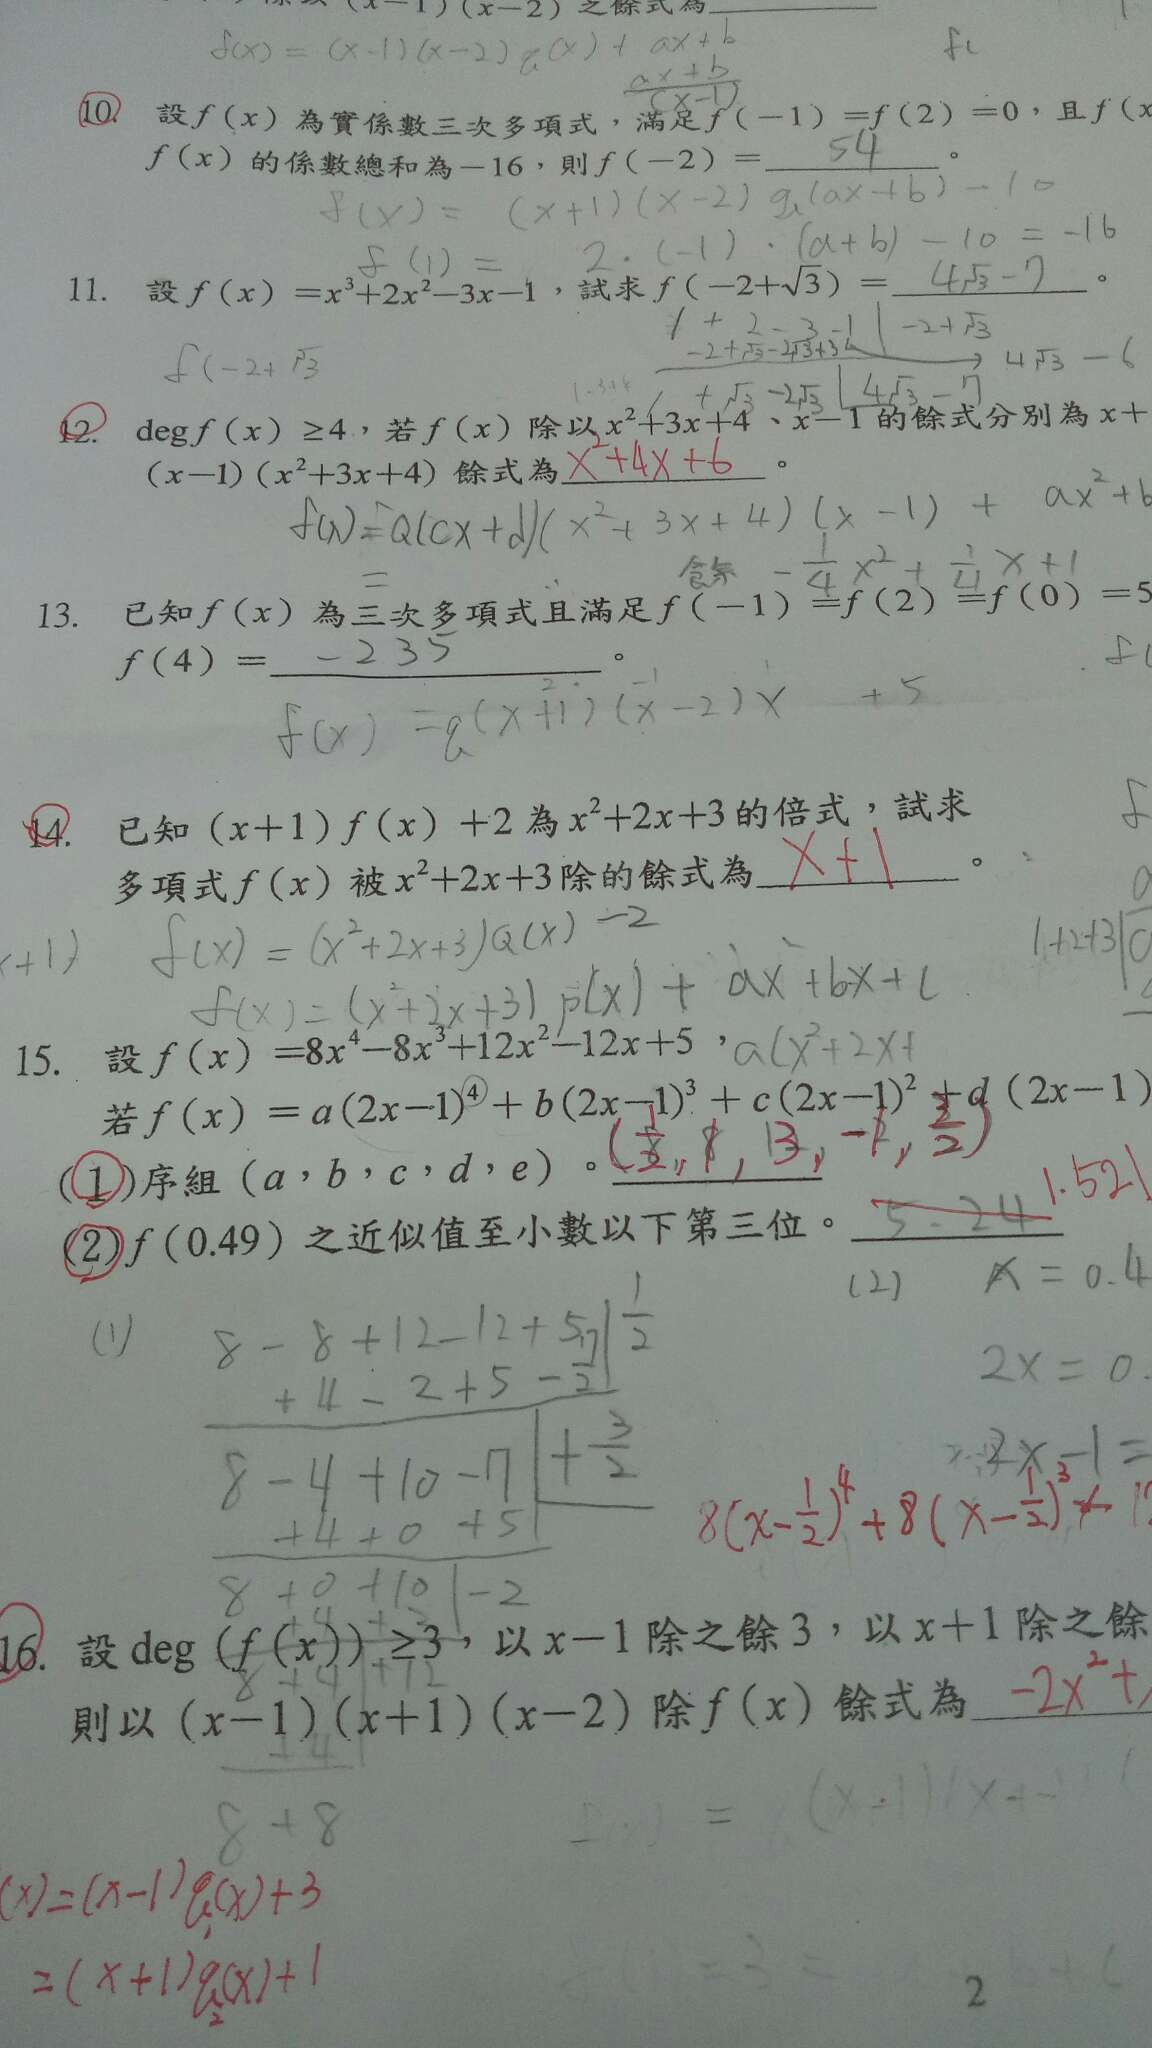 (x-1)(x-2)之餘式為
f(x) = (x-1)(x-2)q(x) + ax+b
ax+b
(x-1)
10. 設f(x)為實係數三次多項式，滿足f(-1)=f(2)=0，且f(x
f(x)的係數總和為-16，則f(-2)= 54 。
f(x) = (x+1)(x-2)q(ax+b) - 10
f(1) = 2·(-1)·(a+b) - 10 = -16
11. 設f(x)=x³+2x²-3x-1，試求f(-2+√3)= 4√3-7 。
1 + 2 - 3 - 1 | -2+√3
f(-2+√3
4√3 - 6
1 + √3 - 2√3 | 4√3 - 7
12. deg f(x)≥4，若f(x)除以x²+3x+4、x-1的餘式分別為x+
(x-1)(x²+3x+4)餘式為 x²+4x+6 。
f(x)=Q(cx+d)(x²+3x+4)(x-1) + ax²+b
=
餘 -1/4x² + 1/4x+1
13. 已知f(x)為三次多項式且滿足f(-1)=f(2)=f(0)=5
f(4)= -235 。
f(x) = q(x+1)(x-2)x +5
14. 已知(x+1)f(x)+2為x²+2x+3的倍式，試求
多項式f(x)被x²+2x+3除的餘式為 x+1 。
x+1) f(x) = (x²+2x+3)Q(x) -2
1+2+3
f(x) = (x²+2x+3)p(x) + ax²+bx+c
15. 設f(x)=8x⁴-8x³+12x²-12x+5，a(x²+2x+
若f(x)=a(2x-1)⁴+b(2x-1)³+c(2x-1)²+d(2x-1)
(1)序組(a，b，c，d，e)。
(2)f(0.49)之近似值至小數以下第三位。 5.24 1.521
(2) x = 0.4
(1) 8 - 8 + 12 - 12 + 5 | 1/2
+4 - 2 + 5 - 7/2
2x = 0.
8 - 4 + 10 - 7 | + 3/2
2x - 1 =
+4 + 0 + 5
8(x-1/2)⁴+8(x-1/2)³+ 12
8 + 0 + 10 | -2
16. 設deg(f(x))≥3，以x-1除之餘3，以x+1除之餘
8 + 4 | +12
則以(x-1)(x+1)(x-2)除f(x)餘式為 -2x²+
+4
8 + 8
(x)=(x-1)q₁(x)+3
=(x+1)q₂(x)+1
2